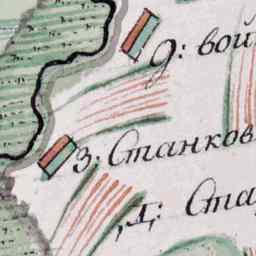 9: вой
3: Станков
Д: Ста